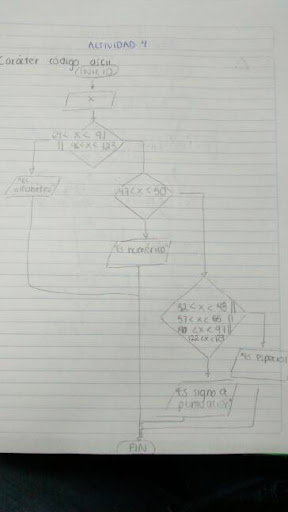 ACTIVIDAD 4
Carácter código ascii
INICIO
x
64 < x < 91
|| 96 < x < 123
"es
alfabético"
47 < x < 58
"es numérico"
32 < x < 48 ||
57 < x < 65 ||
90 < x < 97 ||
122 < x < 127
"es especial"
"es signo de
puntuación"
FIN